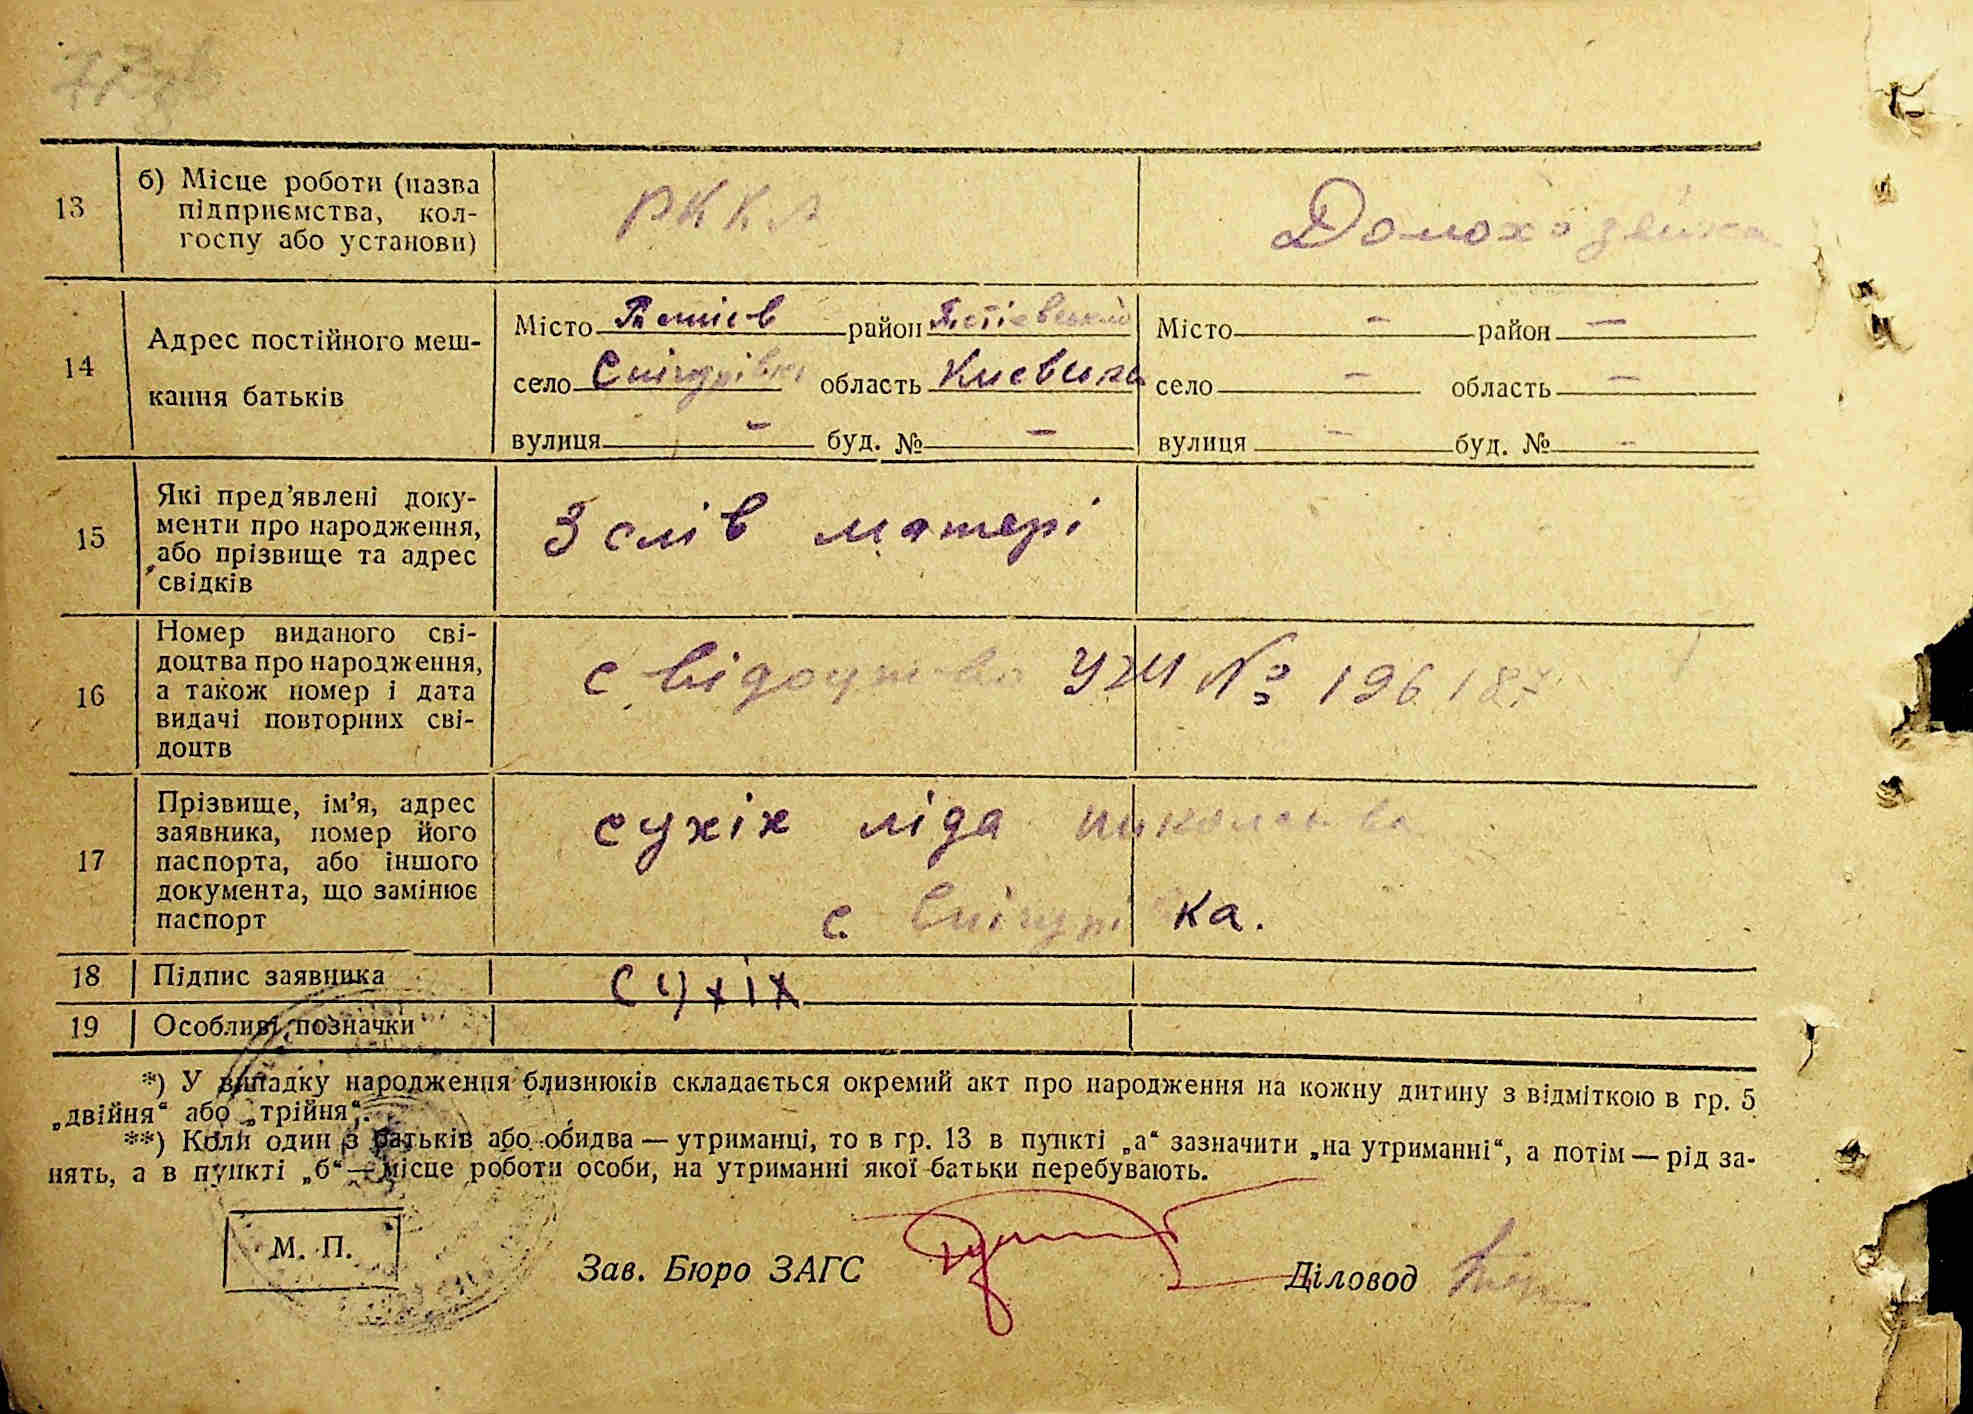 13 б) Місце роботи (назва підприємства, колгоспу або установи) РККА Домохозяйка
14 Адрес постійного мешкання батьків
Місто район Місто — район —
село Снігурівка область Киевська село — область —
вулиця — буд. № — вулиця — буд. № —
15 Які пред'явлені документи про народження, або прізвище та адрес свідків З слів матері
16 Номер виданого свідоцтва про народження, а також номер і дата видачі повторних свідоцтв свідоцтво № 196187
17 Прізвище, ім'я, адрес заявника, номер його паспорта, або іншого документа, що замінює паспорт сухіх ліда николаевна
с Снігурівка.
18 Підпис заявника сухіх
19 Особливі позначки
*) У випадку народження близнюків складається окремий акт про народження на кожну дитину з відміткою в гр. 5
„двійня“ або „трійня“.
**) Коли один з батьків або обидва — утриманці, то в гр. 13 в пункті „а“ зазначити „на утриманні“, а потім — рід за-
нять, а в пункті „б“ — місце роботи особи, на утриманні якої батьки перебувають.
М. П.
Зав. Бюро ЗАГС Діловод